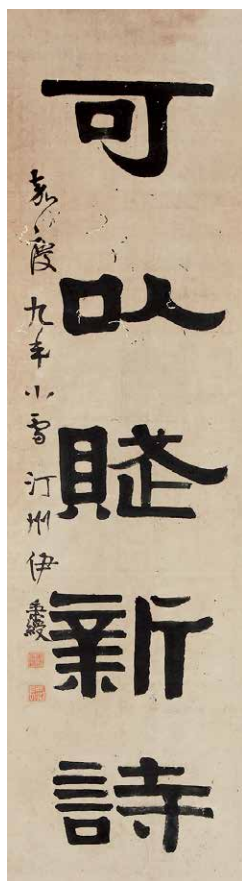 可以賦新詩
嘉慶九年小雪汀州伊秉綬